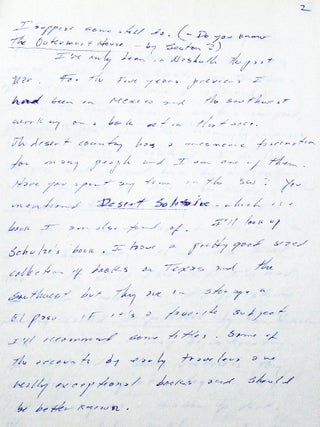 2
I suppose some still do. (– Do you know
The Outermost House – by Beston?)
I've only been in Nashville the past
year. For the five years previous I
had been in Mexico and the southwest
working on a book set in that area.
The desert country has a fascination
for many people and I am one of them.
Have you spent any time in the SW? You
mentioned Desert Solitaire which is a
book I am also fond of. I'll look up
Schultz's book. I have a pretty good sized
collection of books on Texas and the
Southwest but they are in storage in
El Paso. If it's a favorite subject
I'll recommend some titles. Some of
the accounts by early travelers are
really exceptional books and should
be better known.